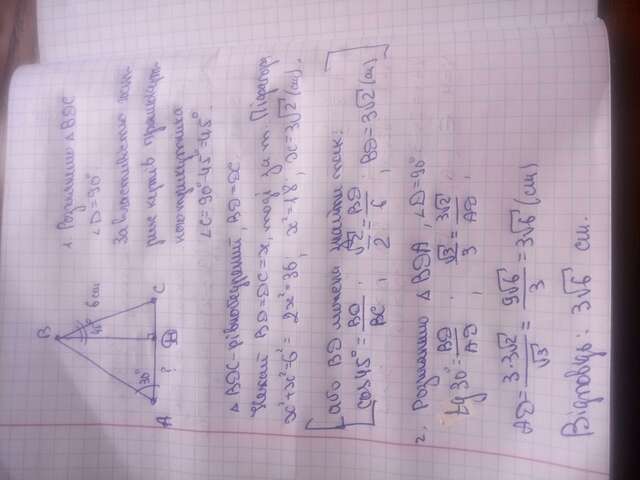 B
45°
6 см
30°
?
A
D
C
1. Розглянемо △BDC
∠D=90°
За властивістю гост-
рих кутів прямокут-
ного трикутника
∠C=90°-45°=45°.
△BDC-рівнобедрений, BD=DC.
Нехай BD=DC=x, тоді за т. Піфагора
x²+x²=6²; 2x²=36; x²=18, x=3√2 (см).
[або BD можна знайти так:
cos45°=BD/BC; √2/2=BD/6; BD=3√2 (см)]
2. Розглянемо △BDA, ∠D=90°.
tg30°=BD/AD; √3/3=3√2/AD;
AD=3·3√2/√3=9√6/3=3√6 (см)
Відповідь: 3√6 см.